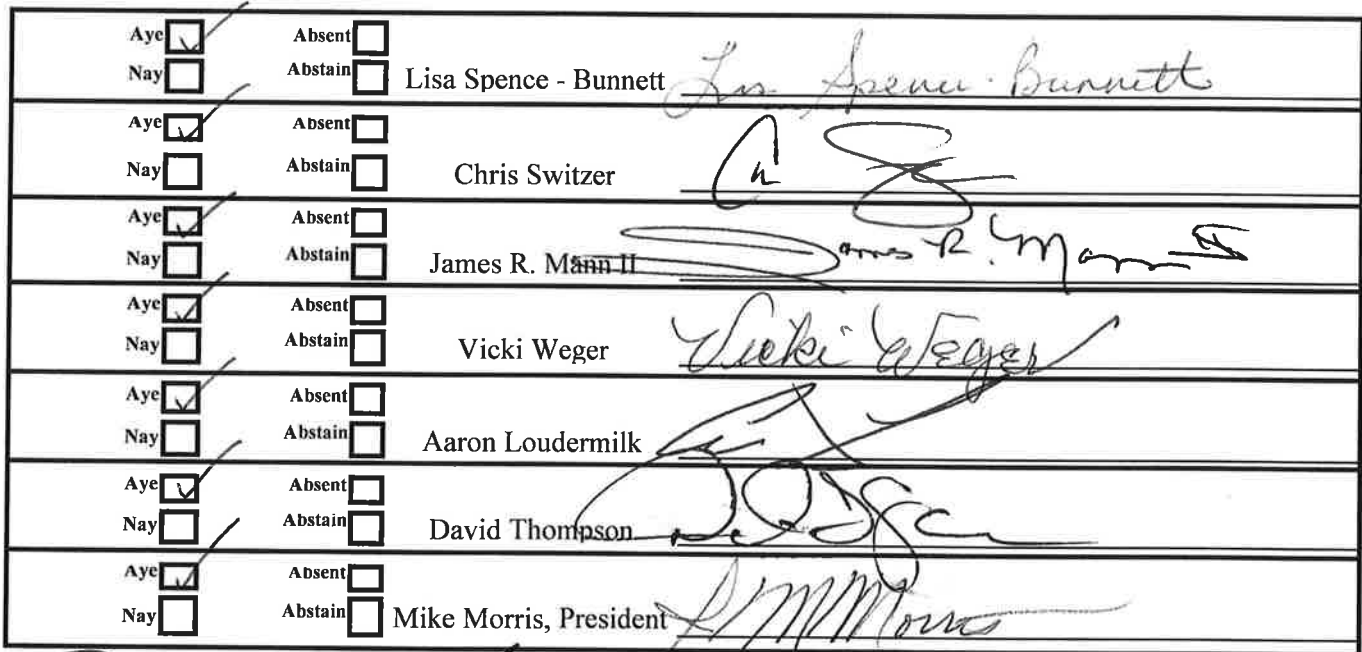 Aye Absent
Nay Abstain Lisa Spence - Bunnett Lisa Spence-Bunnett
Aye Absent
Nay Abstain Chris Switzer
Aye Absent
Nay Abstain James R. Mann II James R. Mann II
Aye Absent
Nay Abstain Vicki Weger Vicki Weger
Aye Absent
Nay Abstain Aaron Loudermilk
Aye Absent
Nay Abstain David Thompson
Aye Absent
Nay Abstain Mike Morris, President Morris